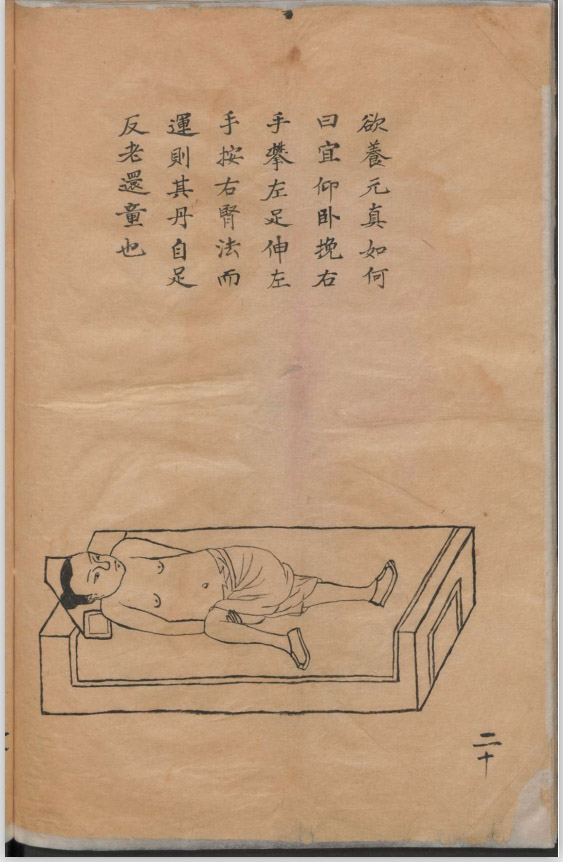 欲養元真如何
曰宜仰卧挽右
手攀左足伸左
手按右腎法而
運則其丹自足
反老還童也
二十